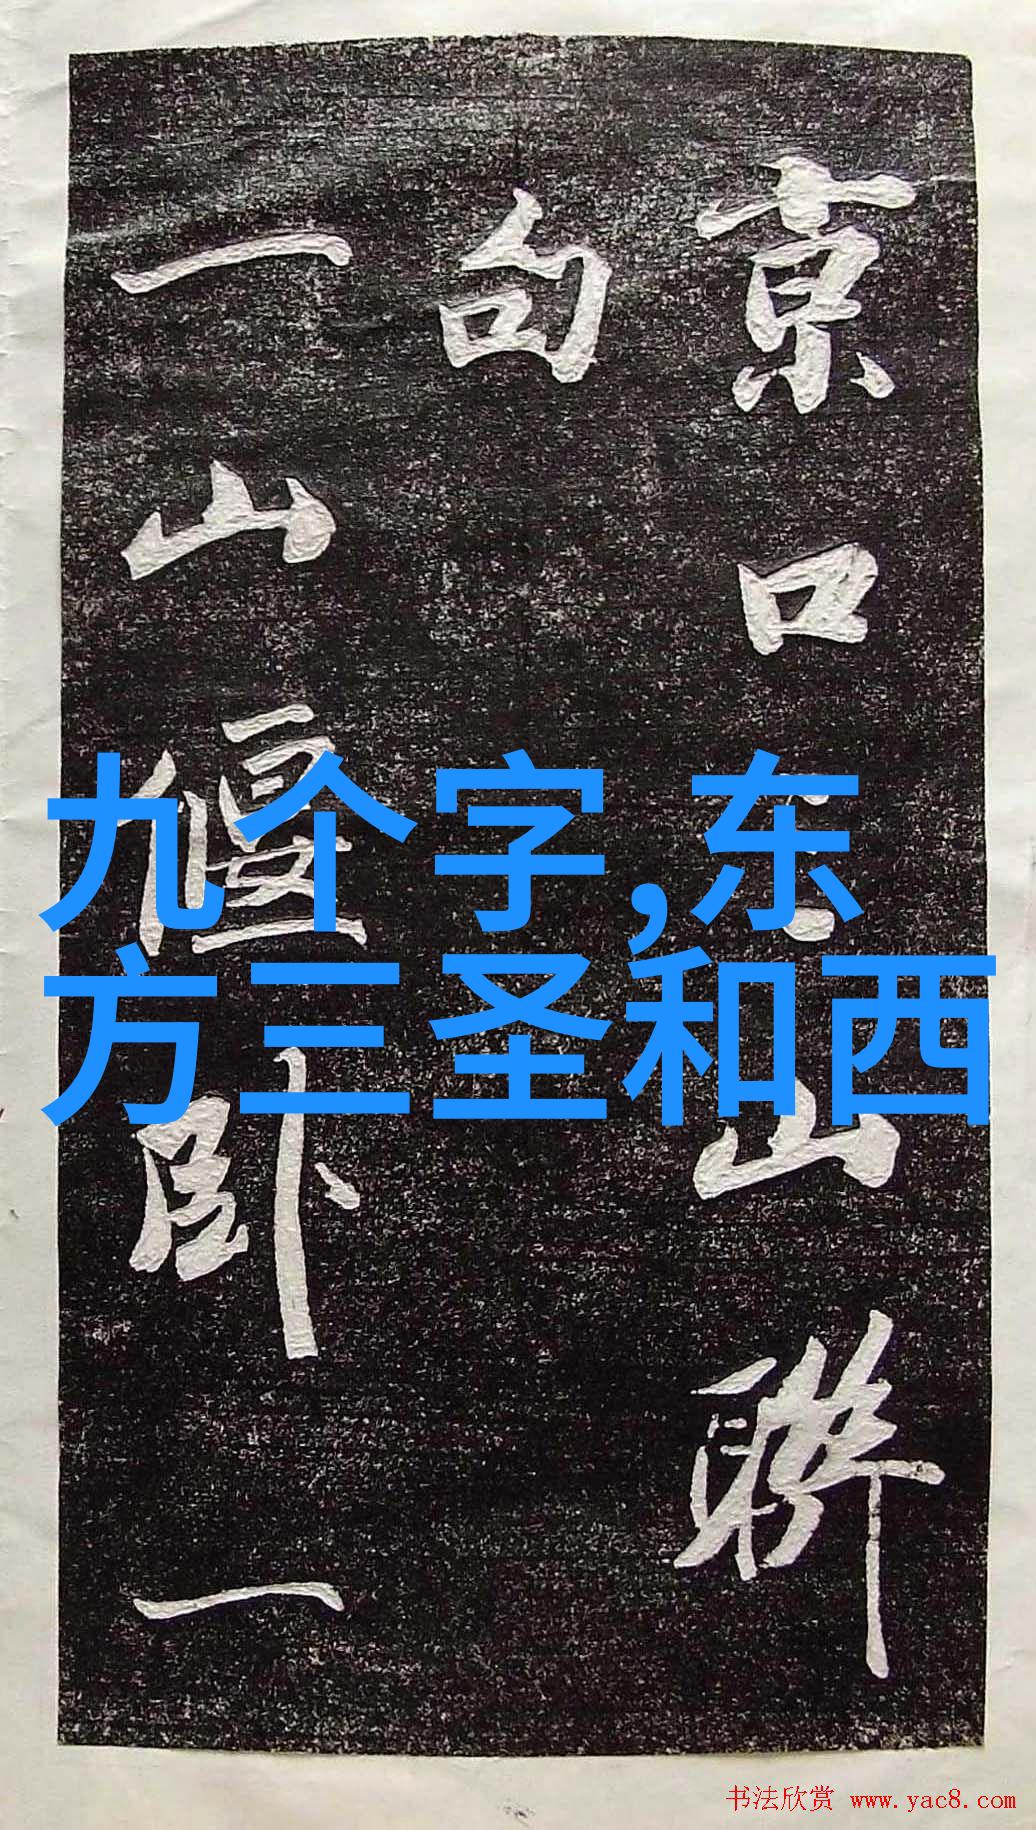 亰口三山聯
句
一山偃卧一
九个字,东
方三圣和西
书法欣赏 www.yac8.com